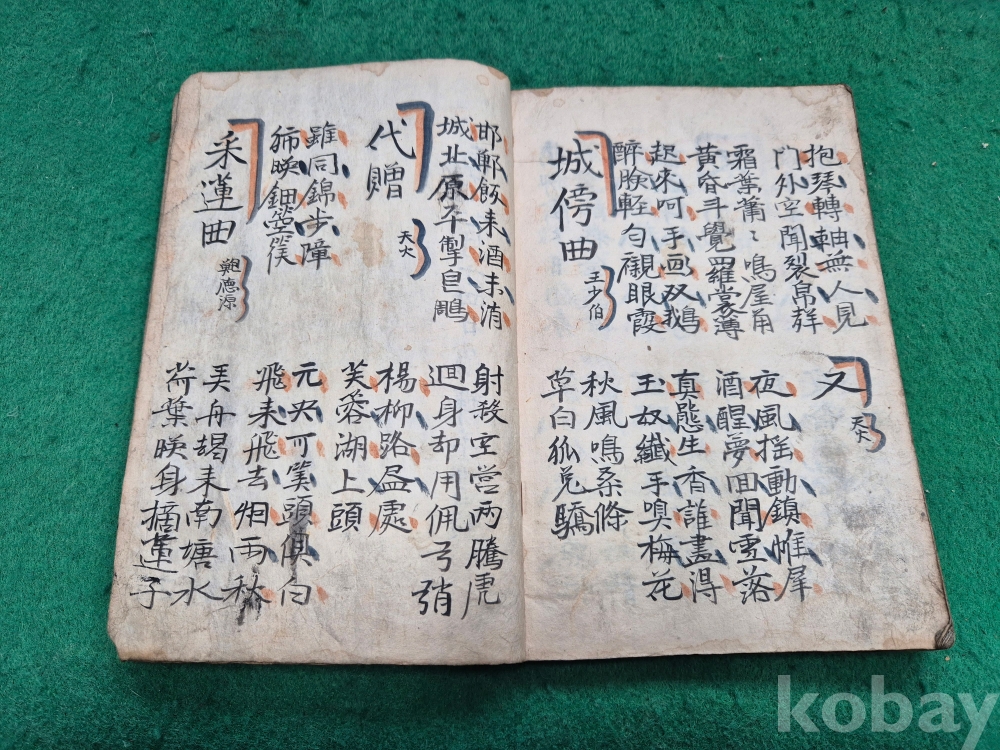 抱琴轉軸無人見
门外空聞裂帛聲
又
霜葉蕭〻鳴屋角
黃昏斗覺羅裳薄
夜風揺動鎮帷犀
酒醒夢回聞雪落
起來呵手画双鵝
醉臉軽勻襯眼霞
真態生香誰畫得
玉奴纖手嗅梅花
城傍曲
王少伯
秋風鳴桑條
草白狐兎驕
邯鄲飯来酒未消
城北原平掣皀鵰
射殺空営两騰虎
迴身却用佩弓弰
代贈
楊柳路盡處
芙蓉湖上頭
雖同錦步障
映鈿箜篌
元央可笑頭俱白
飛来飛去烟雨秋
采蓮曲
鄭德源
弄舟朅来南塘水
荷葉映身摘蓮子
kobay